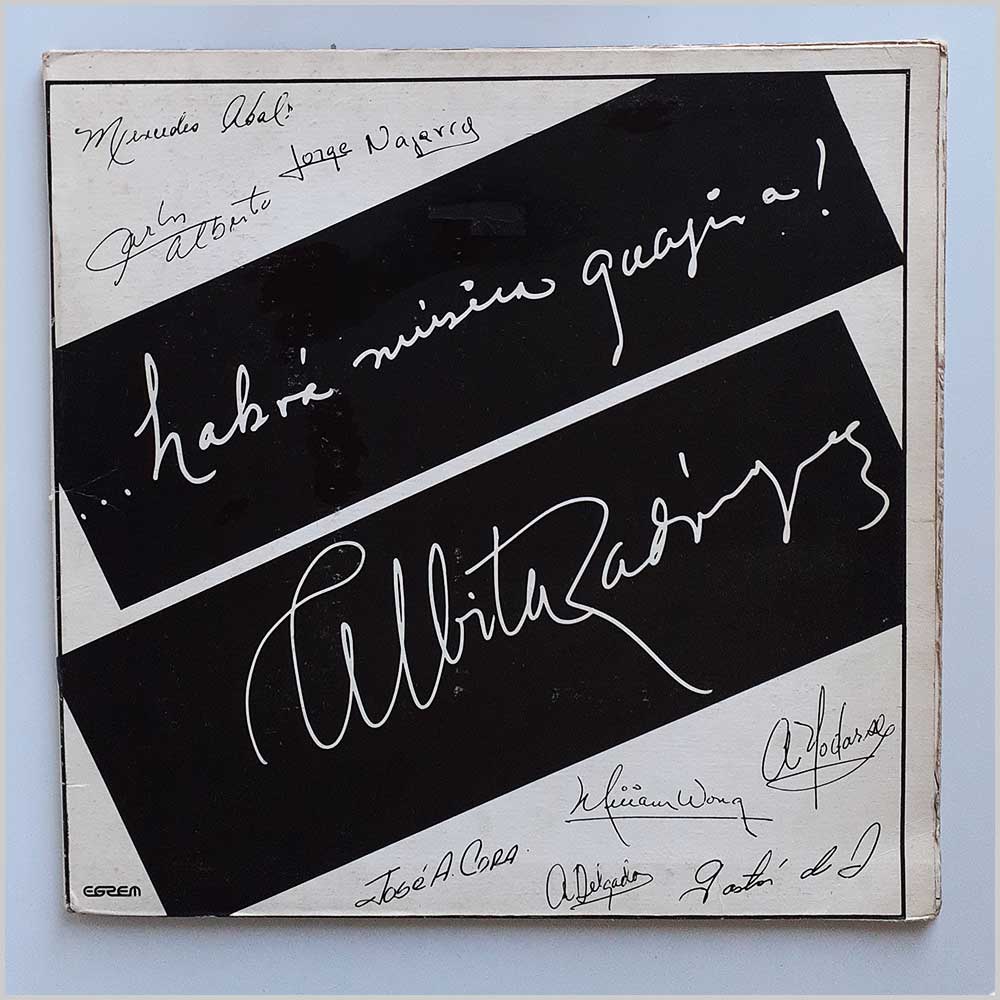 Mercedes Abal
Jorge Najarro
Carlos Alberto
...habrá música guajira!
Albita Rodríguez
A Yodarse
Miriam Wong
José A. Cora
A. Delgado
Gastón
EGREM